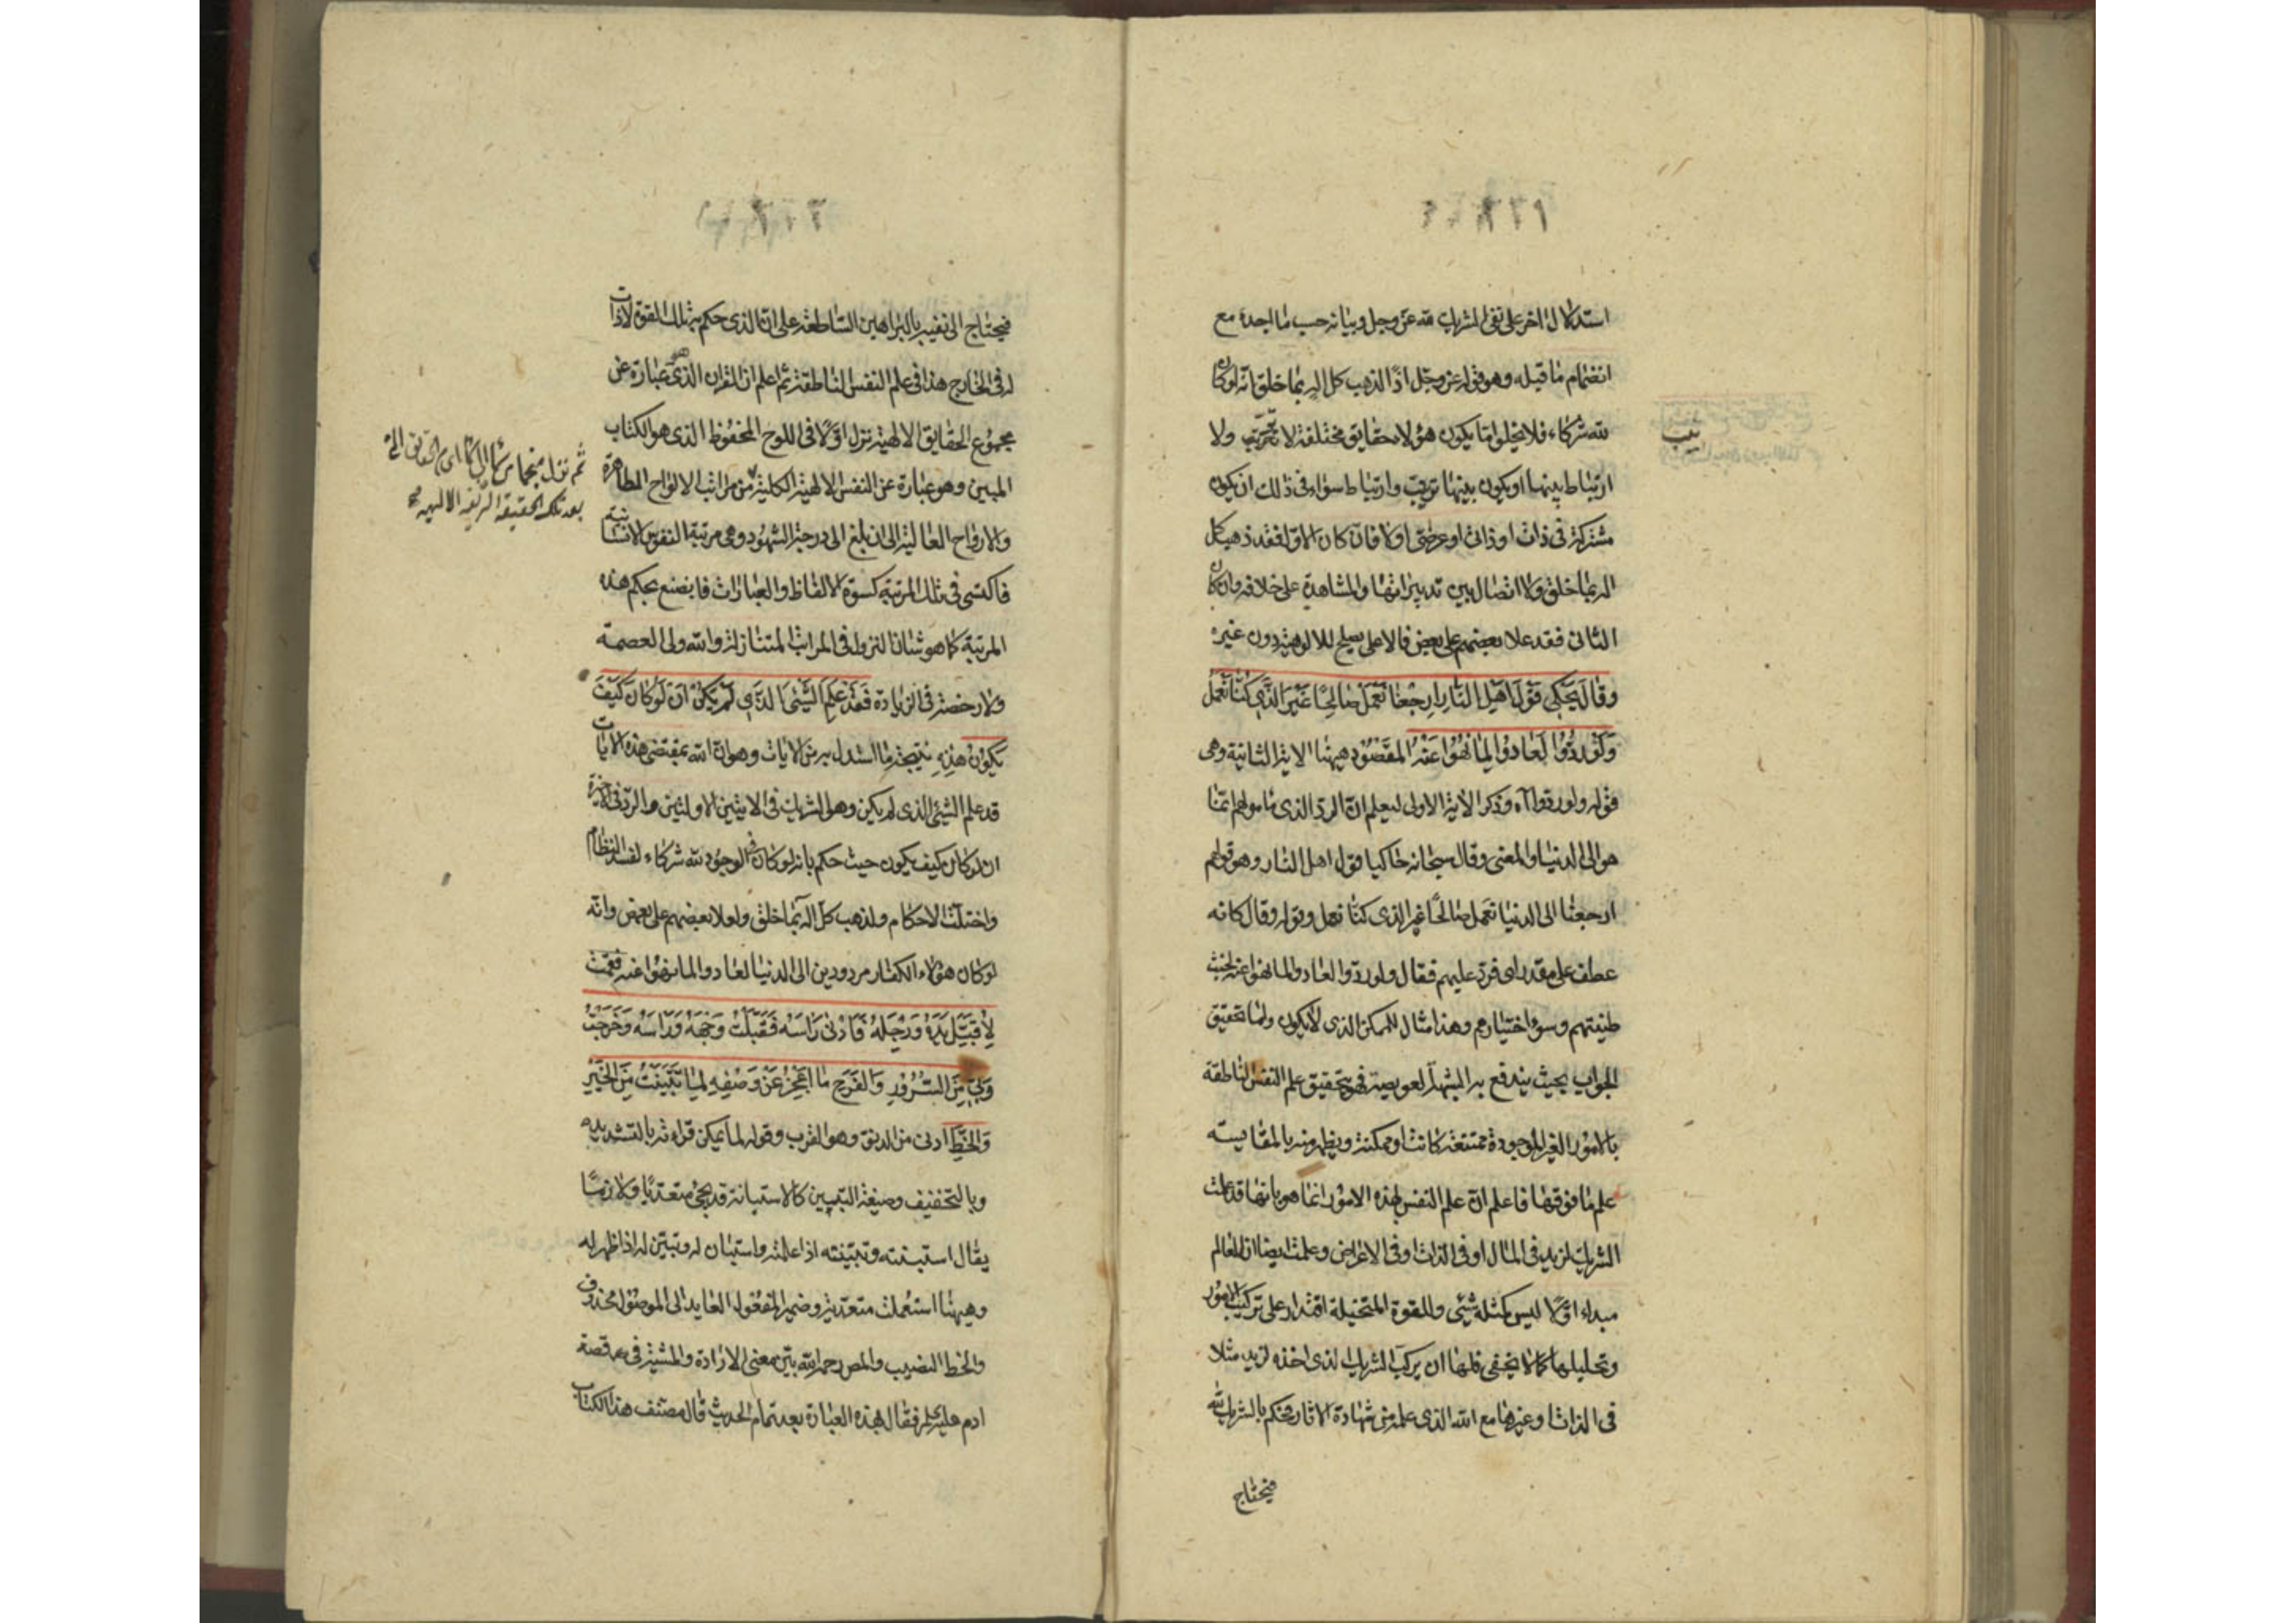 استدلال اخر على نفى الشريك لله عز وجل وبيانه حسب ما اجده مع
انضمام ما قبله وهو قوله عز وجل اذا لذهب كل اله بما خلق انه لو كان
لله شركاء فلا يخلو اما يكون هؤلاء حقايق مختلفة لا ترتب ولا
ترتب
ارتباط بينها او يكون بينها ترتب وارتباط سواء فى ذلك ان يكون
مشتركة فى ذات او ذاتى او عرضى او لا فان كان الاول فقد ذهب كل
اله بما خلق ولا اتصال بين تدبيراتها والمشاهدة على خلافه وان كان
الثانى فقد علا بعضهم على بعض فالاعلى يصلح للالوهية دون غيره
وقال يحكى قول اهل النار ارجعنا نعمل صالحا غير الذى كنا نعمل
ولو ردوا لعادوا لما نهوا عنه المقصود ههنا الاية الثانية وهى
قوله ولو ردوا اه وذكر الاية الاولى ليعلم ان الرد الذى ما مولهم انما
هو الى الدنيا والمعنى وقال سبحانه حاكيا قول اهل النار وهو قولهم
ارجعنا الى الدنيا نعمل صالحا غير الذى كنا نعمل وقوله وقال كانه
عطف على مقدر اى فرد عليهم فقال ولو ردوا لعادوا لما نهوا عنه لخبث
طينتهم وسوء اختيارهم وهذا مثال للممكن الذى لا يكون ولما تحقيق
الجواب بحيث يندفع به الشبهة العويصة فهو بتحقيق علم النفس الناطقة
بالامور الغير الموجودة ممتنعة كانت او ممكنة ويظهر منه بالمقايسة
علم ما فوقها فاعلم ان علم النفس لهذه الامور انما هو بانها قد علمت
الشريك لزيد فى المال او فى الذات او فى الاعراض وعلمت ايضا ان للعالم
مبداء اولا ليس كمثله شئى وللقوة المتخيلة اقتدار على تركيب الامور
وتحليلها كما لا يخفى فلها ان يركب الشريك الذى اخذه لزيد مثلا
فى الذات او غيرها مع الله الذى علمه من شهادة الاثار فحكم بالشريك لله
فيحتاج
فيحتاج الى نفيه بالبراهين الساطعة على ان الذى حكم به تلك القوة لا ذات
له فى الخارج هذا فى علم النفس الناطقة ثم علم ان القران الذى هو عبارة عن
مجموع الحقايق الالهية نزل اولا فى اللوح المحفوظ الذى هو الكتاب
المبين وهو عبارة عن النفس الالهية الكلية ثم من مراتب الالواح الطاهرة
ثم نزل منجما
بعد تلك الحقيقة الشريفة الالهية
والارواح العالية الى ان بلغ الى درجة الشهود وهى مرتبة النفوس الانسانية
فاكتسى فى تلك المرتبة كسوة الالفاظ والعبارات فانصبغ بحكم هذه
المرتبة كما هو شان النزول فى المراتب المتنازلة والله ولى العصمة
ولا رخصة فى الزيادة فقد علم الشئى الذى لم يكن ان لو كان كيف
يكون هذه نتيجة ما استدل به من الايات وهو ان الله بمقتضى هذه الايات
قد علم الشئى الذى لم يكن وهو الشريك فى الايتين الاوليين والرد فى الاخيرة
ان لو كان كيف يكون حيث حكم بانه لو كان فى الوجود لله شركاء لفسد النظام
واختلت الاحكام ولذهب كل اله بما خلق ولعلا بعضهم على بعض وانه
لو كان هؤلاء الكفار مردودين الى الدنيا لعادوا لما نهوا عنه فقمت
لاقبل يده ورجله فادنى راسه فقبلت وجهه وراسه وخرجت
وبى من السرور والفرح ما اعجز عن وصفه لما تبينت من الخير
والحظ ادنى من الدنو وهو القرب وقوله لما يمكن قراءته بالتشديد
وبالتخفيف وصيغة التبيين كالاستبانة قد يجئ متعديا ولازما
يقال استبنته وتبينته اذا علمته واستبان له وتبين له اذا ظهر له
وههنا استعملت متعدية وضمير المفعول العايد الى الموصول محذوف
والحظ النصيب والمص رحمه الله بين معنى الارادة والمشية فى قصة
ادم عليه السلام فقال بهذه العبارة بعد تمام الحديث قال مصنف هذا الكتاب